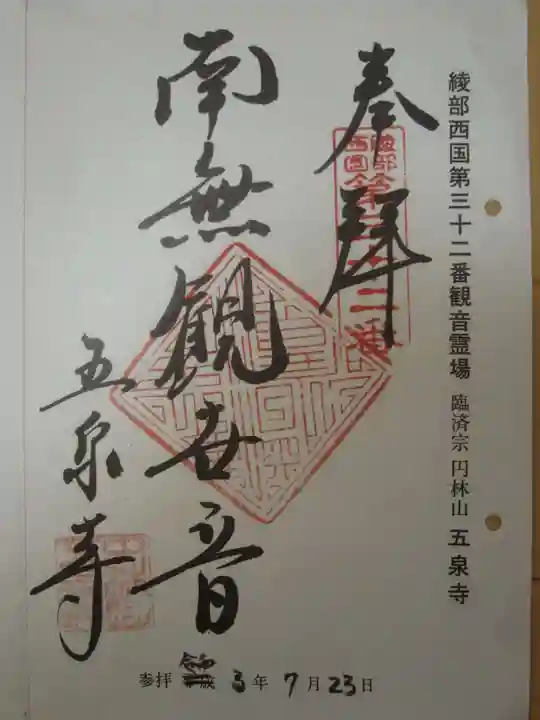 綾部西国第三十二番観音霊場 臨済宗 円林山 五泉寺
奉拝
綾部西国第三十二番
南無観世音
五泉寺
参拝 令和 3年 7月 23日